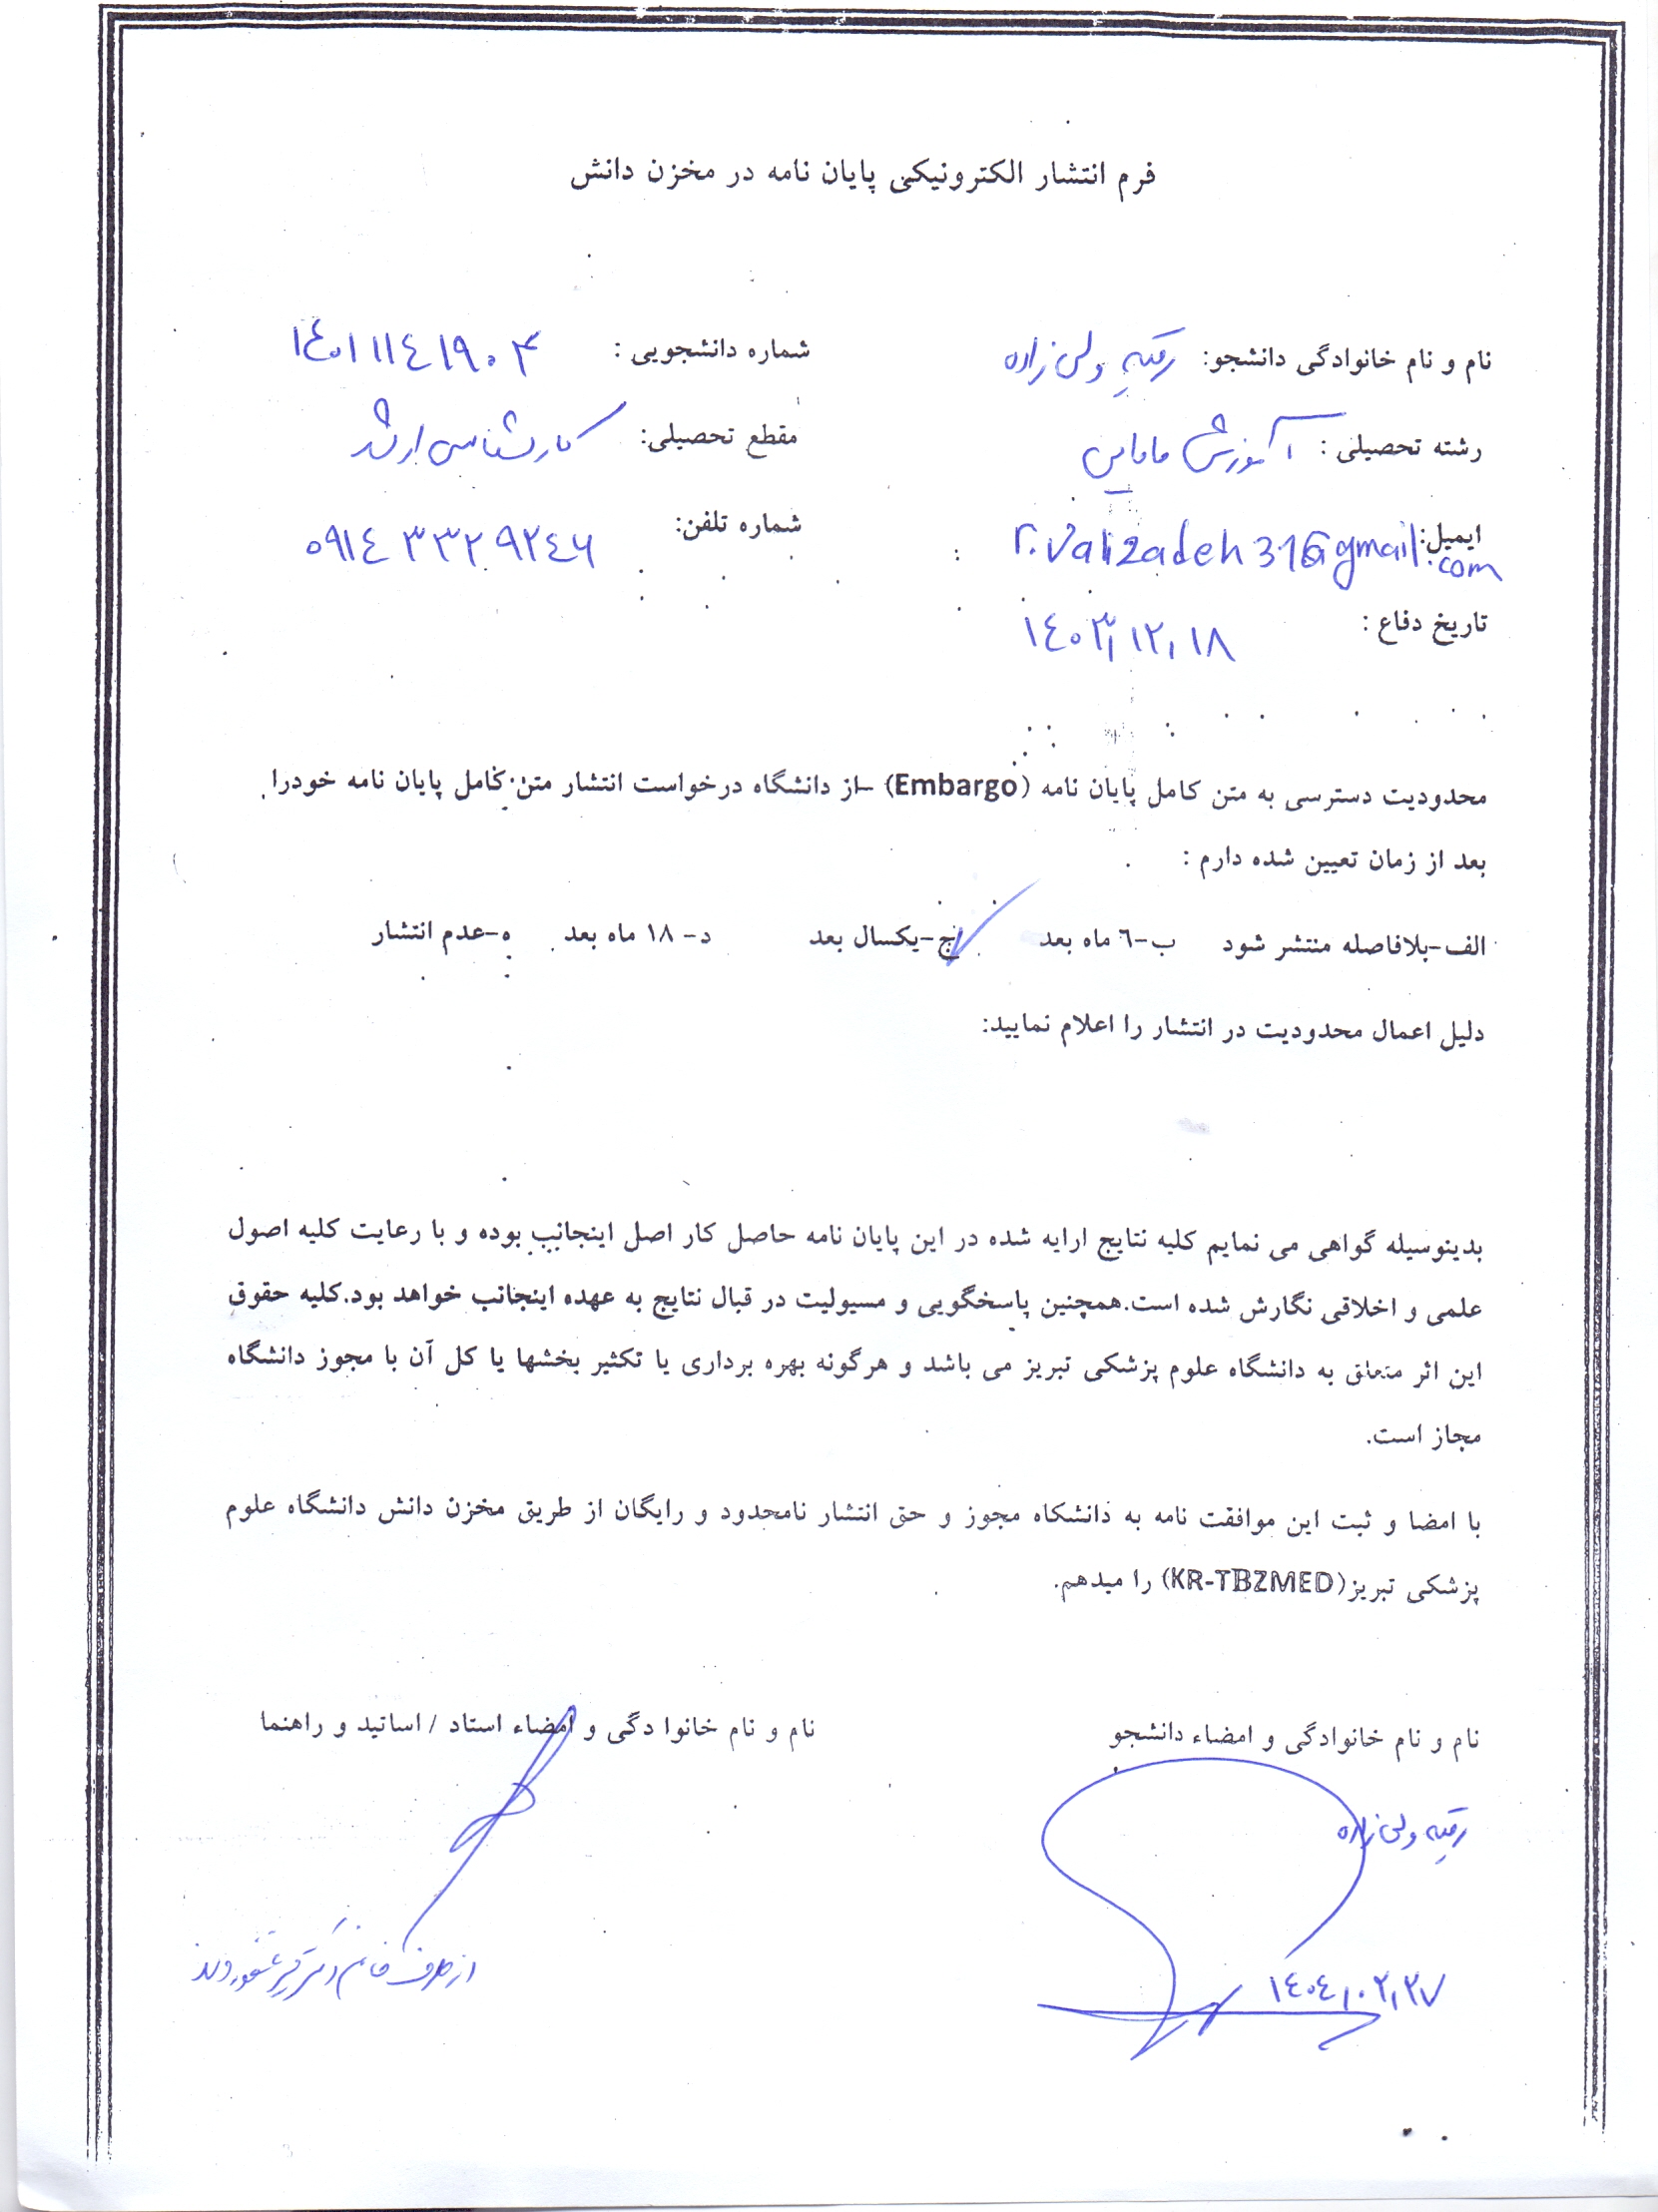 فرم انتشار الکترونیکی پایان نامه در مخزن دانش
نام و نام خانوادگی دانشجو: رقیه ولی زاده شماره دانشجویی : ۱٤۰۱۱۱٤۱۹۰۴
رشته تحصیلی : آموزش مامایی مقطع تحصیلی: کارشناسی ارشد
ایمیل: r.valizadeh316@gmail.com شماره تلفن: ۰۹۱٤۳۳۲۹۲٤۶
تاریخ دفاع : ۱٤۰۳,۱۲,۱۸
محدودیت دسترسی به متن کامل پایان نامه (Embargo) -از دانشگاه درخواست انتشار متن کامل پایان نامه خودرا
بعد از زمان تعیین شده دارم :
الف-بلافاصله منتشر شود ب-٦ ماه بعد ج-یکسال بعد د- ۱۸ ماه بعد ه-عدم انتشار
دلیل اعمال محدودیت در انتشار را اعلام نمایید:
بدینوسیله گواهی می نمایم کلیه نتایج ارایه شده در این پایان نامه حاصل کار اصل اینجانب بوده و با رعایت کلیه اصول
علمی و اخلاقی نگارش شده است.همچنین پاسخگویی و مسیولیت در قبال نتایج به عهده اینجانب خواهد بود.کلیه حقوق
این اثر متعلق به دانشگاه علوم پزشکی تبریز می باشد و هرگونه بهره برداری یا تکثیر بخشها یا کل آن با مجوز دانشگاه
مجاز است.
با امضا و ثبت این موافقت نامه به دانشکاه مجوز و حق انتشار نامحدود و رایگان از طریق مخزن دانش دانشگاه علوم
پزشکی تبریز(KR-TBZMED) را میدهم.
نام و نام خانوادگی و امضاء دانشجو نام و نام خانوا دگی و امضاء استاد / اساتید و راهنما
رقیه ولی زاده
۱٤۰٤,۰۲,۲۷
از طرف خانم دکتر